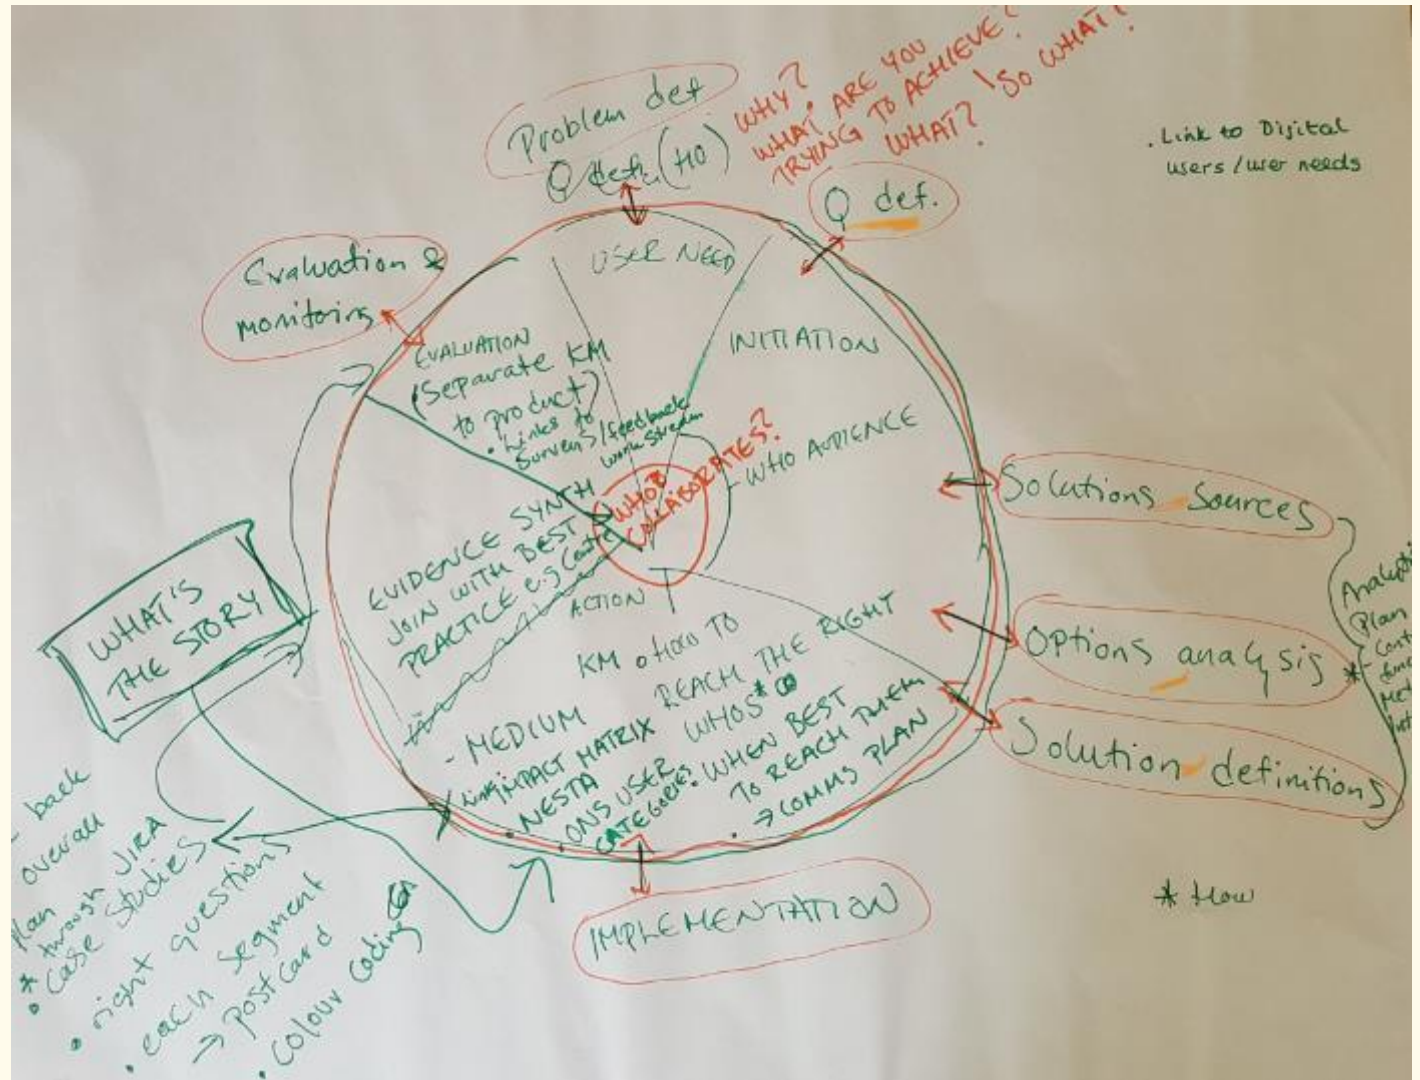 Problem def
Q def. (HO)
WHY?
WHAT ARE YOU
TRYING TO ACHIEVE?
WHAT?
SO WHAT?
Q def.
. Link to Digital
users/user needs
Evaluation &
monitoring
USER NEED
INITIATION
- WHO AUDIENCE
EVALUATION
(Separate KM
to product)
• Links to
Surveys/feedback
work stream
WHO
COLLABORATES?
EVIDENCE SYNTH
JOIN WITH BEST
PRACTICE e.g Centre
ACTION
KM • HOW TO
REACH THE RIGHT
WHOS*
- MEDIUM
IMPACT MATRIX
• NESTA
• ONS USER
CATEGORIES
• WHEN BEST
TO REACH THEM
→ COMMS PLAN
Solutions Sources
Options analysis *
Solution definitions
Plan
* How
IMPLEMENTATION
WHAT'S
THE STORY
back
overall
Plan
* through JIRA
• Case Studies
• right questions
• each segment
→ postcard
• colour coding